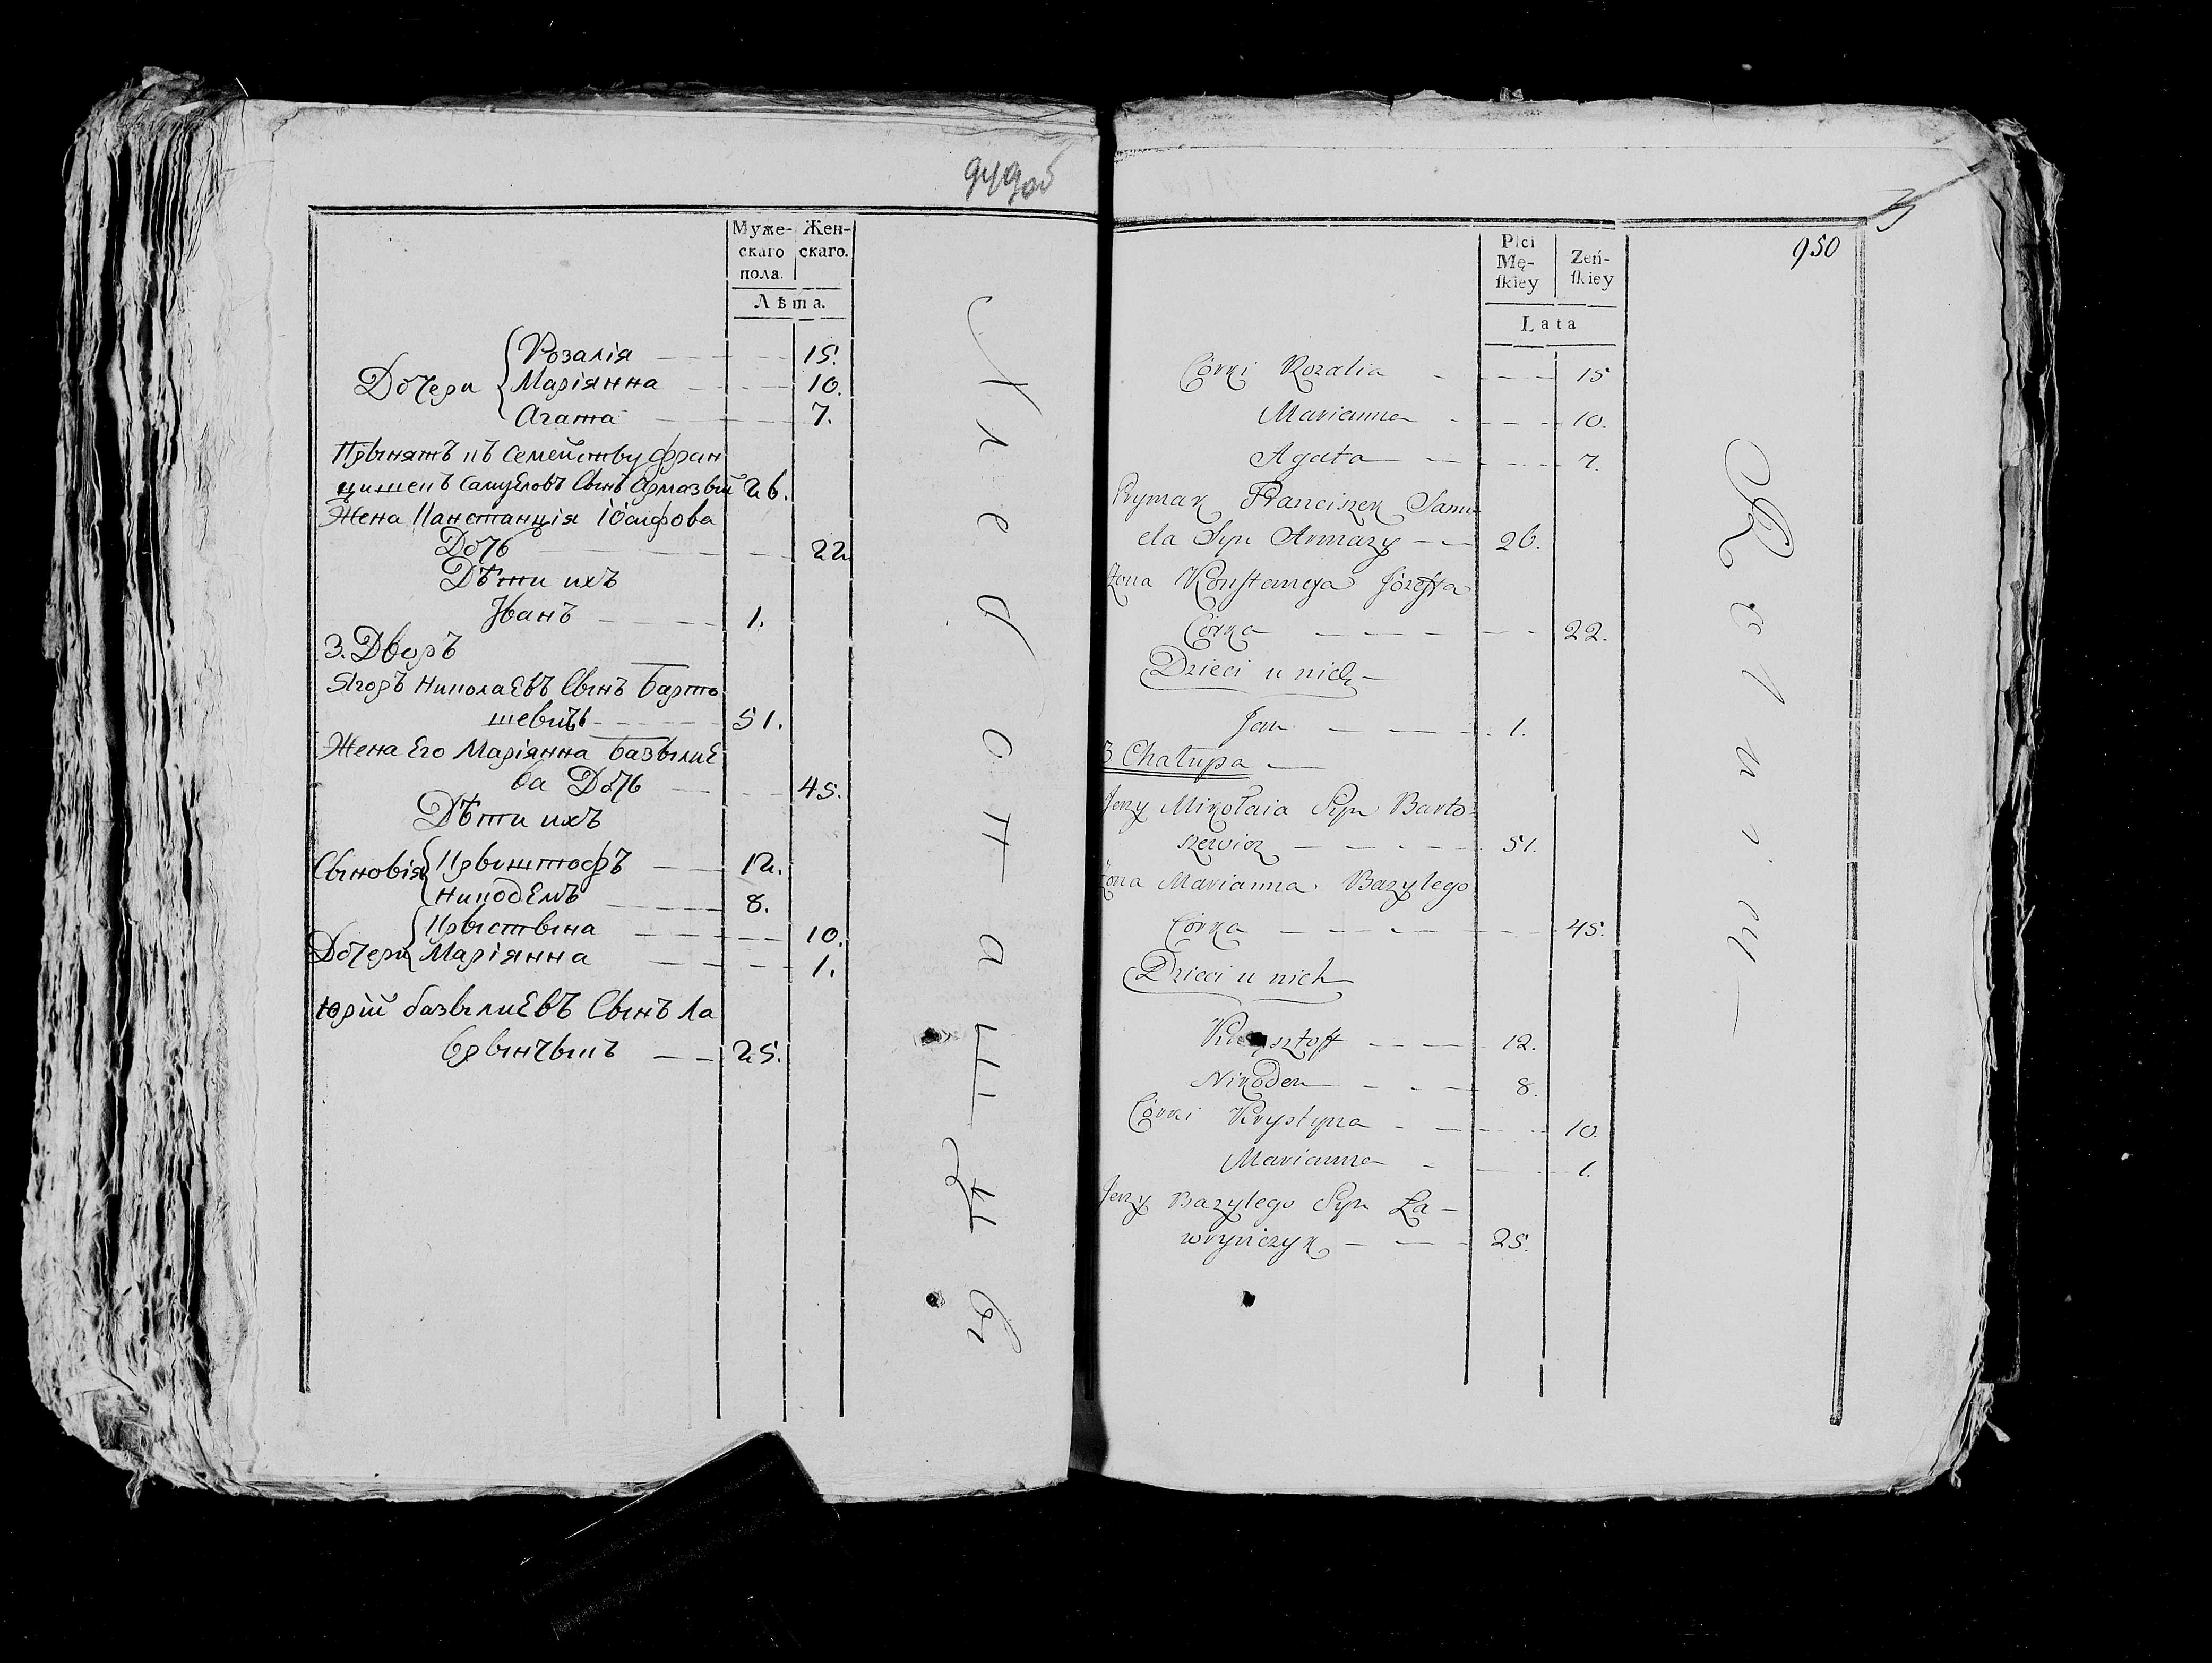 949об
Муже- Жен-
скаго скаго.
пола.
Лѣта.
Дочери Розалія 15.
Маріянна 10.
Агата 7.
Прынятъ къ Семейству фран
цишекъ Самуеловъ Сынъ Армазый 26.
Жена Канстанція Іосифова
Дочь 22
Дѣти ихъ
Иванъ 1.
3. Дворъ
Ягоръ Николаевъ Сынъ Барто
шевичъ 51.
Жена Его Маріянна Базылие
ва Дочь 45.
Дѣти ихъ
Сыновія Крыштофъ 12.
Никодемъ 8.
Дочери Крыстына 10.
Маріянна 1.
Юрій Базылиевъ Сынъ Ла
врынчыкъ 25.
950
Płci
Mę- Żeń-
ſkiey ſkiey
Lata
Córki Rozalia 15
Marianna 10.
Agata 7.
Prymak Franciszek Samu-
ela Syn Armazy 26.
Żona Konstancya Józefa
Córka 22.
Dzieci u nich
Jan 1.
3 Chałupa
Jerzy Mikołaia Syn Barto-
szewicz 51.
Żona Marianna Bazylego
Córka 45.
Dzieci u nich
Krzysztoff 12.
Nikodem 8.
Córki Krystyna 10.
Marianna 1.
Jerzy Bazylego Syn Ła-
wryńczyk 25.